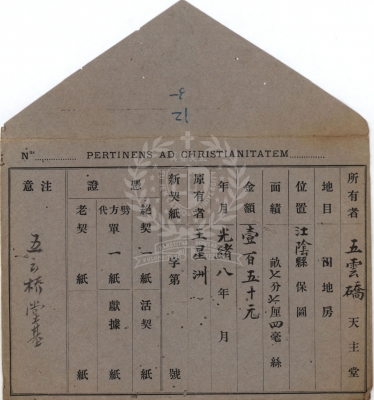 Nº PERTINENS AD CHRISTIANITATEM
所有者 五雲橋 天主堂
地目 地房
位置 江陰縣 保圖
面積 畝七分七厘四毫 絲
金額 壹百五十元
年月 光緒八年 月
原有者 王星洲
新契紙 字第 號
憑證
絕契一紙 活契 紙
劈方代單一紙 獻據 紙
老契 紙 紙
注意
五云桥堂基